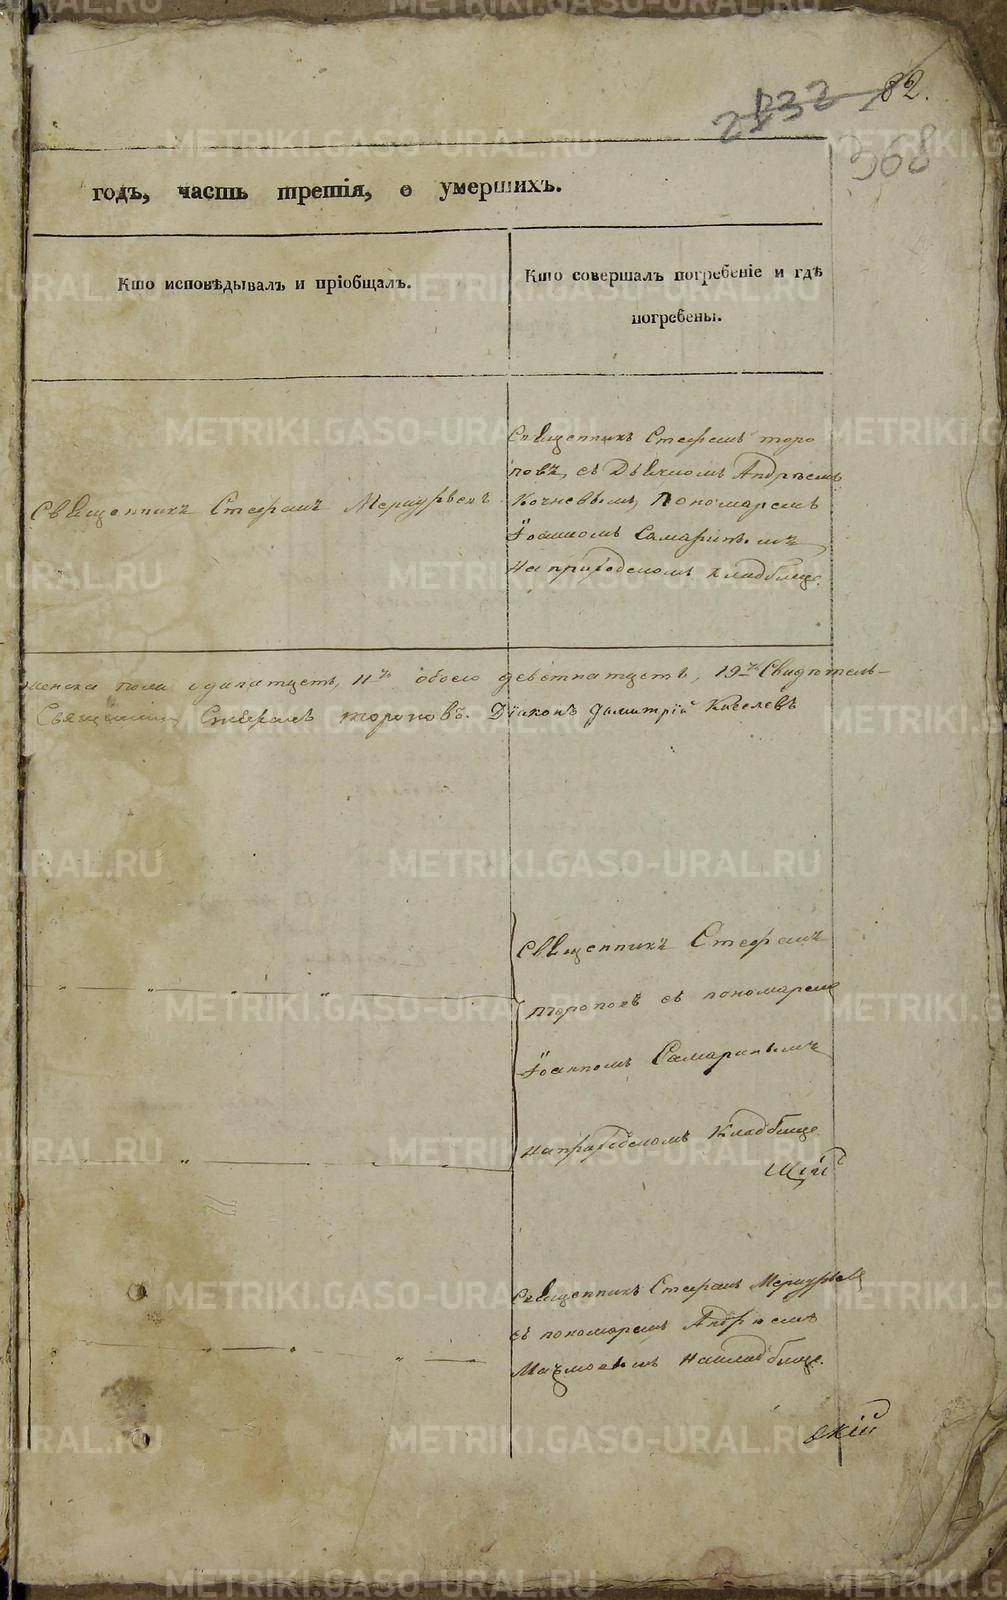 82.
2832
368
годъ, часть третія, о умершихъ.
Кто исповѣдывалъ и пріобщалъ.
Кто совершалъ погребеніе и гдѣ
погребены.
Священникъ Стефанъ Меркурьевъ
Священникъ Стефанъ торо
повъ, съ Дьякомъ Андреемъ
Кочневымъ, Пономаремъ
Іоанномъ Самаринымъ
На приходскомъ кладбище.
женска пола одинатцеть, 11ть обоего девětнатцеть, 19ть Свидѣтель-
Священникъ Стефанъ тороповъ. Діаконъ Димитрій Киселевъ
Священникъ Стефанъ
тороповъ съ пономаремъ
Іоанномъ Самаринымъ
на приходскомъ Кладбище
щій
Священникъ Стефанъ Меркурьевъ
съ пономаремъ Андреемъ
на кладбище.
скій
METRIKI.GASO-URAL.RU